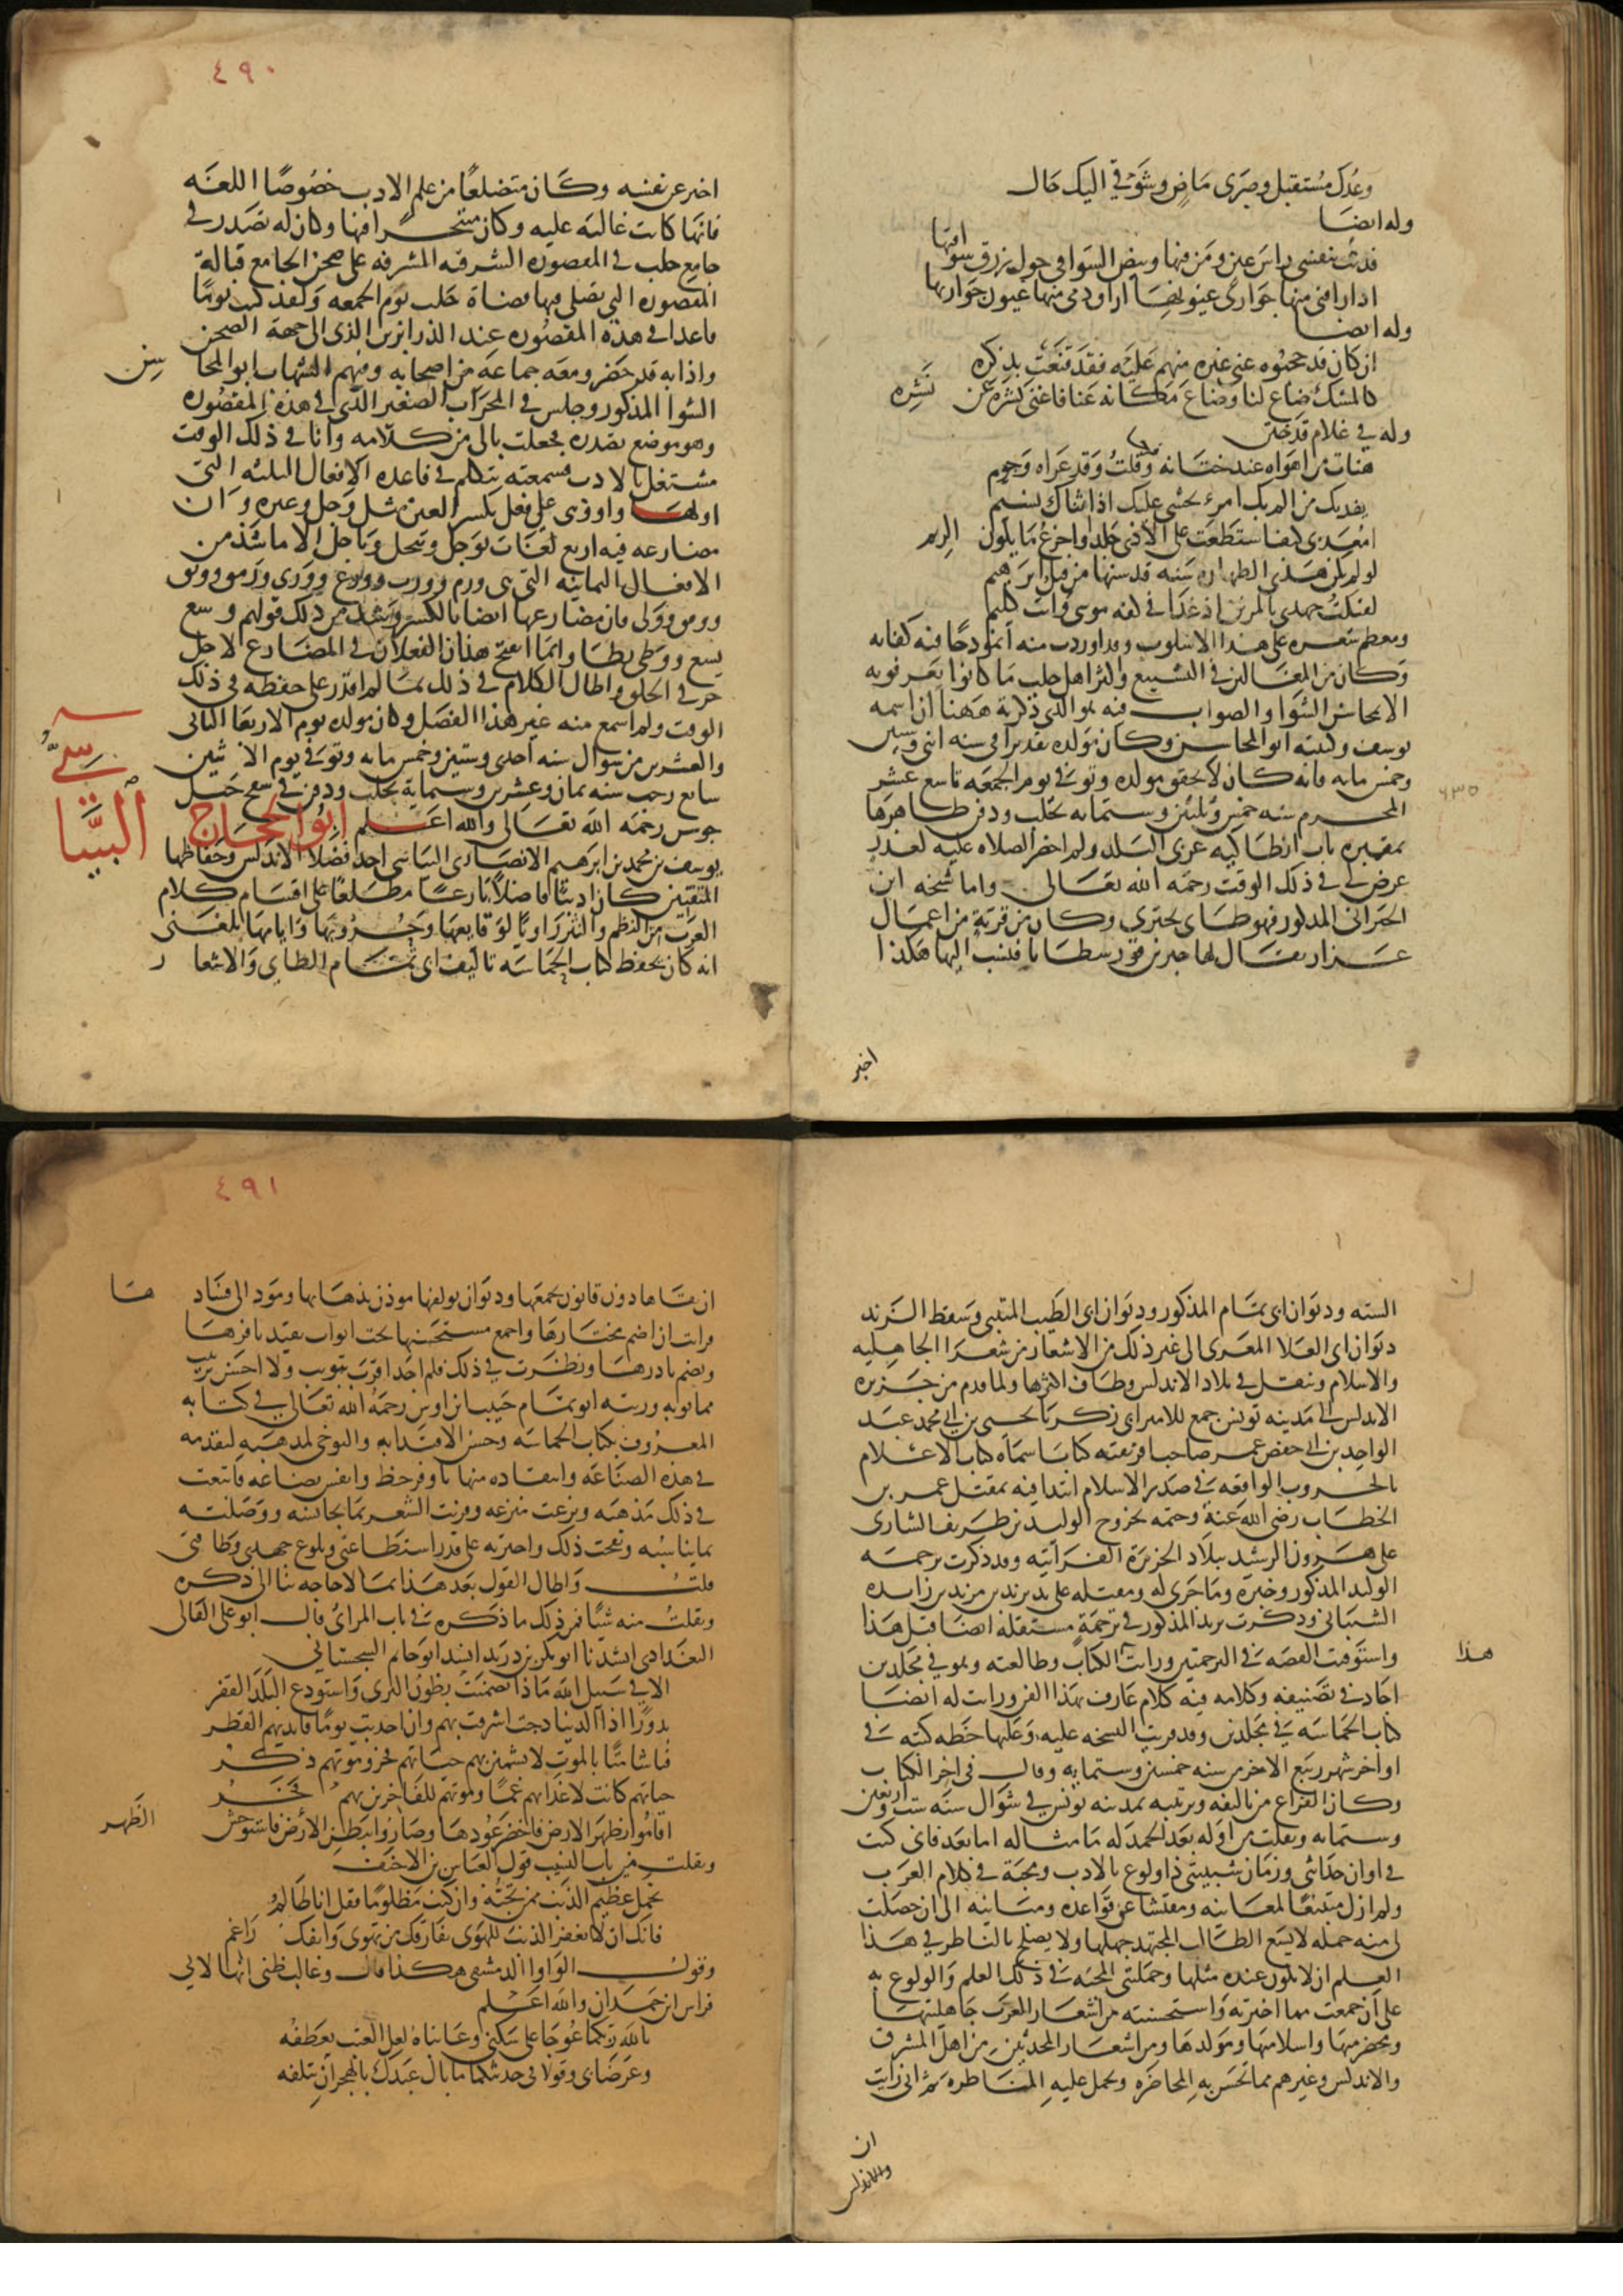 وعدك مستقبل وصبري ماض وشوقي اليك حال
وله ايضا
فديت بنفسي راس عين ومن فيها وبيض السواقي حول زرق سواقيها
اذا راقني منها جواري عيونها اراق دمي منها عيون جواريها
وله ايضا
ان كان قد حجبوه عني غيرة منهم عليه فقد قنعت بذكره
كالمسك ضاع لنا وضاع مكانه عنا فاغنى نشره عن نشره
وله في غلام قد ختن
هنات من اهواه عند ختانه وقلت وقد عراه وجوم
يفديك من الم بك امرؤ يخشى عليك اذا ثناك نسيم
امعذبي كيف استطعت على الاذى جلدا واجزع ما يكون الريم
لو لم تكن هذي الطهارة سنة قد سنها من قبل ابرهيم
لفتكت جهدي بالمزين اذ غدا في كفه موسى وانت كليم
ومعظم شعره على هذا الاسلوب وقد اوردت منه انموذجا فيه كفايه
وكان من المغالين في التشيع واكثر اهل حلب ما كانوا يعرفونه
الا بمحاسن الشوا والصواب فيه هو الذي ذكرته ههنا ان اسمه
يوسف وكنيته ابو المحاسن وكان مولده تقديرا في سنه اثنين وستين
وخمس مايه فانه كان لا يحقق مولده وتوفي يوم الجمعه تاسع عشر
المحرم سنه خمس وثلثين وستمايه بحلب ودفن ظاهرها
٦٣٥
بمقبرة باب انطاكيه غربي البلد ولم احضر الصلاه عليه لعذر
عرض لي في ذلك الوقت رحمه الله تعالى واما شيخه ابن
الجبراني المذكور فهو طاى بحتري وكان من قرية من اعمال
عزاز يقال لها جبرين قورسطايا فنسب اليها هكذا
اخبر
٤٩٠
اخبر عن نفسه وكان متضلعا من علم الادب خصوصا اللغه
فانها كانت غالبه عليه وكان متبحرا فيها وكان له تصدر في
جامع حلب في المقصوره الشرقيه المشرفه على صحن الجامع قبالة
المقصوره التي يصلي فيها قضاة حلب يوم الجمعه ولقد كنت يوما
قاعدا في هذه المقصوره عند الدرابزين الذي الى جهة الصحن
واذا به قد حضر ومعه جماعه من اصحابه وفيهم الشهاب ابو المحا سن
الشوا المذكور وجلس في المحراب الصغير الذي في هذه المقصوره
وهو موضع تصدره فجعلت بالي من كلامه وانا في ذلك الوقت
مشتغل بالادب فسمعته يتكلم في قاعده الافعال الثلثه التي
اولها واو وهي على فعل بكسر العين مثل وجل وغيره وان
مضارعه فيه اربع لغات يوجل وييجل وياجل الا ما شذ من
الافعال الثمانيه التي هي ورم وورث وورع ووري وومق ووثق
ووفق وولي فان مضارعها ايضا بالكسر وشذ من ذلك قولهم وسع
يسع ووطي يطا وانما انفتح هذان الفعلان في المضارع لاجل
حرفي الحلق واطال الكلام في ذلك بما لم اقدر على حفظه في ذلك
الوقت ولم اسمع منه غير هذا الفصل وكان مولده يوم الاربعا الثاني
والعشرين من شوال سنه احدى وستين وخمس مايه وتوفي يوم الاثنين
سابع رجب سنه ثمان وعشرين وستماية بحلب ودفن في سفح جبل
جوشن رحمه الله تعالى والله اعلم ابو الحجاج البياسي
يوسف بن محمد بن ابرهيم الانصاري البياسي احد فضلا الاندلس وحفاظها
المتقنين كان اديبا فاضلا بارعا مطلعا على اقسام كلام
العرب من النظم والنثر وراويا لوقايعها وحروبها وايامها بلغني
انه كان يحفظ كتاب الحماسه تاليف ابي تمام الطاي والاشعا ر
السته وديوان ابي تمام المذكور وديوان ابي الطيب المتنبي وسقط الزند
ديوان ابي العلا المعري الى غير ذلك من الاشعار من شعرا الجاهليه
والاسلام وتنقل في بلاد الاندلس وطاف اكثرها ولما قدم من جزيره
الاندلس الى مدينه تونس جمع للامير ابي زكريا يحيى بن ابي محمد عبد
الواحد بن ابي حفص عمر صاحب افريقيه كتابا سماه كتاب الاعلام
بالحروب الواقعه في صدر الاسلام ابتدا فيه بمقتل عمر بن
الخطاب رضي الله عنه وختمه بخروج الوليد بن طريف الشاري
على هرون الرشيد ببلاد الجزيرة الفراتيه وقد ذكرت ترجمه
الوليد المذكور وخبره وما جرى له ومقتله على يد يزيد بن مزيد بن زايده
الشيباني وذكرت يزيد المذكور في ترجمة مستقلة ايضا قبل هذا
واستوفيت القصه في الترجمتين ورايت الكتاب وطالعته وهو في مجلدين هذا
اجاد في تصنيفه وكلامه فيه كلام عارف بهذا الفن ورايت له ايضا
كتاب الحماسه في مجلدين وقد قريت النسخه عليه وعليها خطه كتبه في
اواخر شهر ربيع الاخر سنه خمسين وستمايه وقال في اخر الكتاب
وكان الفراغ من تاليفه وترتيبه بمدينه تونس في شوال سنه ست واربعين
وستمايه ونقلت من اوله بعد الحمدله ما مثاله اما بعد فاني كنت
في اوان حداثتي وزمان شبيبتي ذا ولوع بالادب ومحبة في كلام العرب
ولم ازل متتبعا لمعانيه ومفتشا عن قواعده ومبانيه الى ان حصلت
لي منه جمله لا يسع الطالب المجتهد جهلها ولا يصلح بالناظر في هذا
العلم ان لا يكون عنده مثلها وحملتني المحبه في ذلك العلم والولوع به
على ان جمعت مما اخترته واستحسنته من اشعار العرب جاهليتها
ومخضرميها واسلاميها ومولدها ومن اشعار المحدثين من اهل المشرق
والاندلس وغيرهم مما تحسن به المحاضره وتجمل عليه المناظره ثم اني رايت
ان
والاندلس
٤٩١
ان بقاها دون قانون يجمعها وديوان يولفها موذن بذهابها ومود الى فساد ها
فرايت ان اضم مختارها واجمع مستحسنها تحت ابواب تقيد نافرها
وتضم نادرها ونظرت في ذلك فلم اجد اقرب تبويب ولا احسن ترتيب
مما بوبه ورتبه ابو تمام حبيب بن اوس رحمه الله تعالى في كتابه
المعروف بكتاب الحماسه وحسن الاقتدا به والتوخي لمذهبه لتقدمه
في هذه الصناعه وانفراده منها باوفر حظ وانفس بضاعه فاتبعت
في ذلك مذهبه ونزعت منزعه وقرنت الشعر بما يجانسه ووصلته
بما يناسبه ونقحت ذلك واخترته على قدر استطاعتي وبلوغ جهدي وطاقتي
قلت واطال القول بعد هذا بما لا حاجه بنا الى ذكره
ونقلت منه شيا فمن ذلك ما ذكره في باب المراثي قال ابو علي القالي
البغدادي انشدنا ابو بكر بن دريد انشد ابو حاتم السجستاني
الا في سبيل الله ماذا تضمنت بطون الثرى واستودع البلد القفر
بدورا اذا الدنيا دجت اشرقت بهم وان اجدبت يوما فايديهم القطر
فيا شامتا بالموت لا تشمتن بهم حياتهم فخر وموتهم ذكر
حياتهم كانت لاعدايهم عما وموتهم للفاخرين بهم فخر
اقاموا بظهر الارض فاخضر عودها وصاروا ببطن الارض فاستوحش الظهر
ونقلت من باب النسيب قول العباس بن الاحنف
تحمل عظيم الذنب ممن تحبه وان كنت مظلوما فقل انا ظالم
فانك ان لا تغفر الذنب للهوى يفارقك من تهوى وانفك راغم
وقول الواوا الدمشقي هكذا قال وغالب ظني انها لابي
فراس ابن حمدان والله اعلم
بالله ربكما عوجا على سكني وعاتباه لعل العتب يعطفه
وعرضا بي وقولا في حديثكما ما بال عبدك بالهجران تتلفه